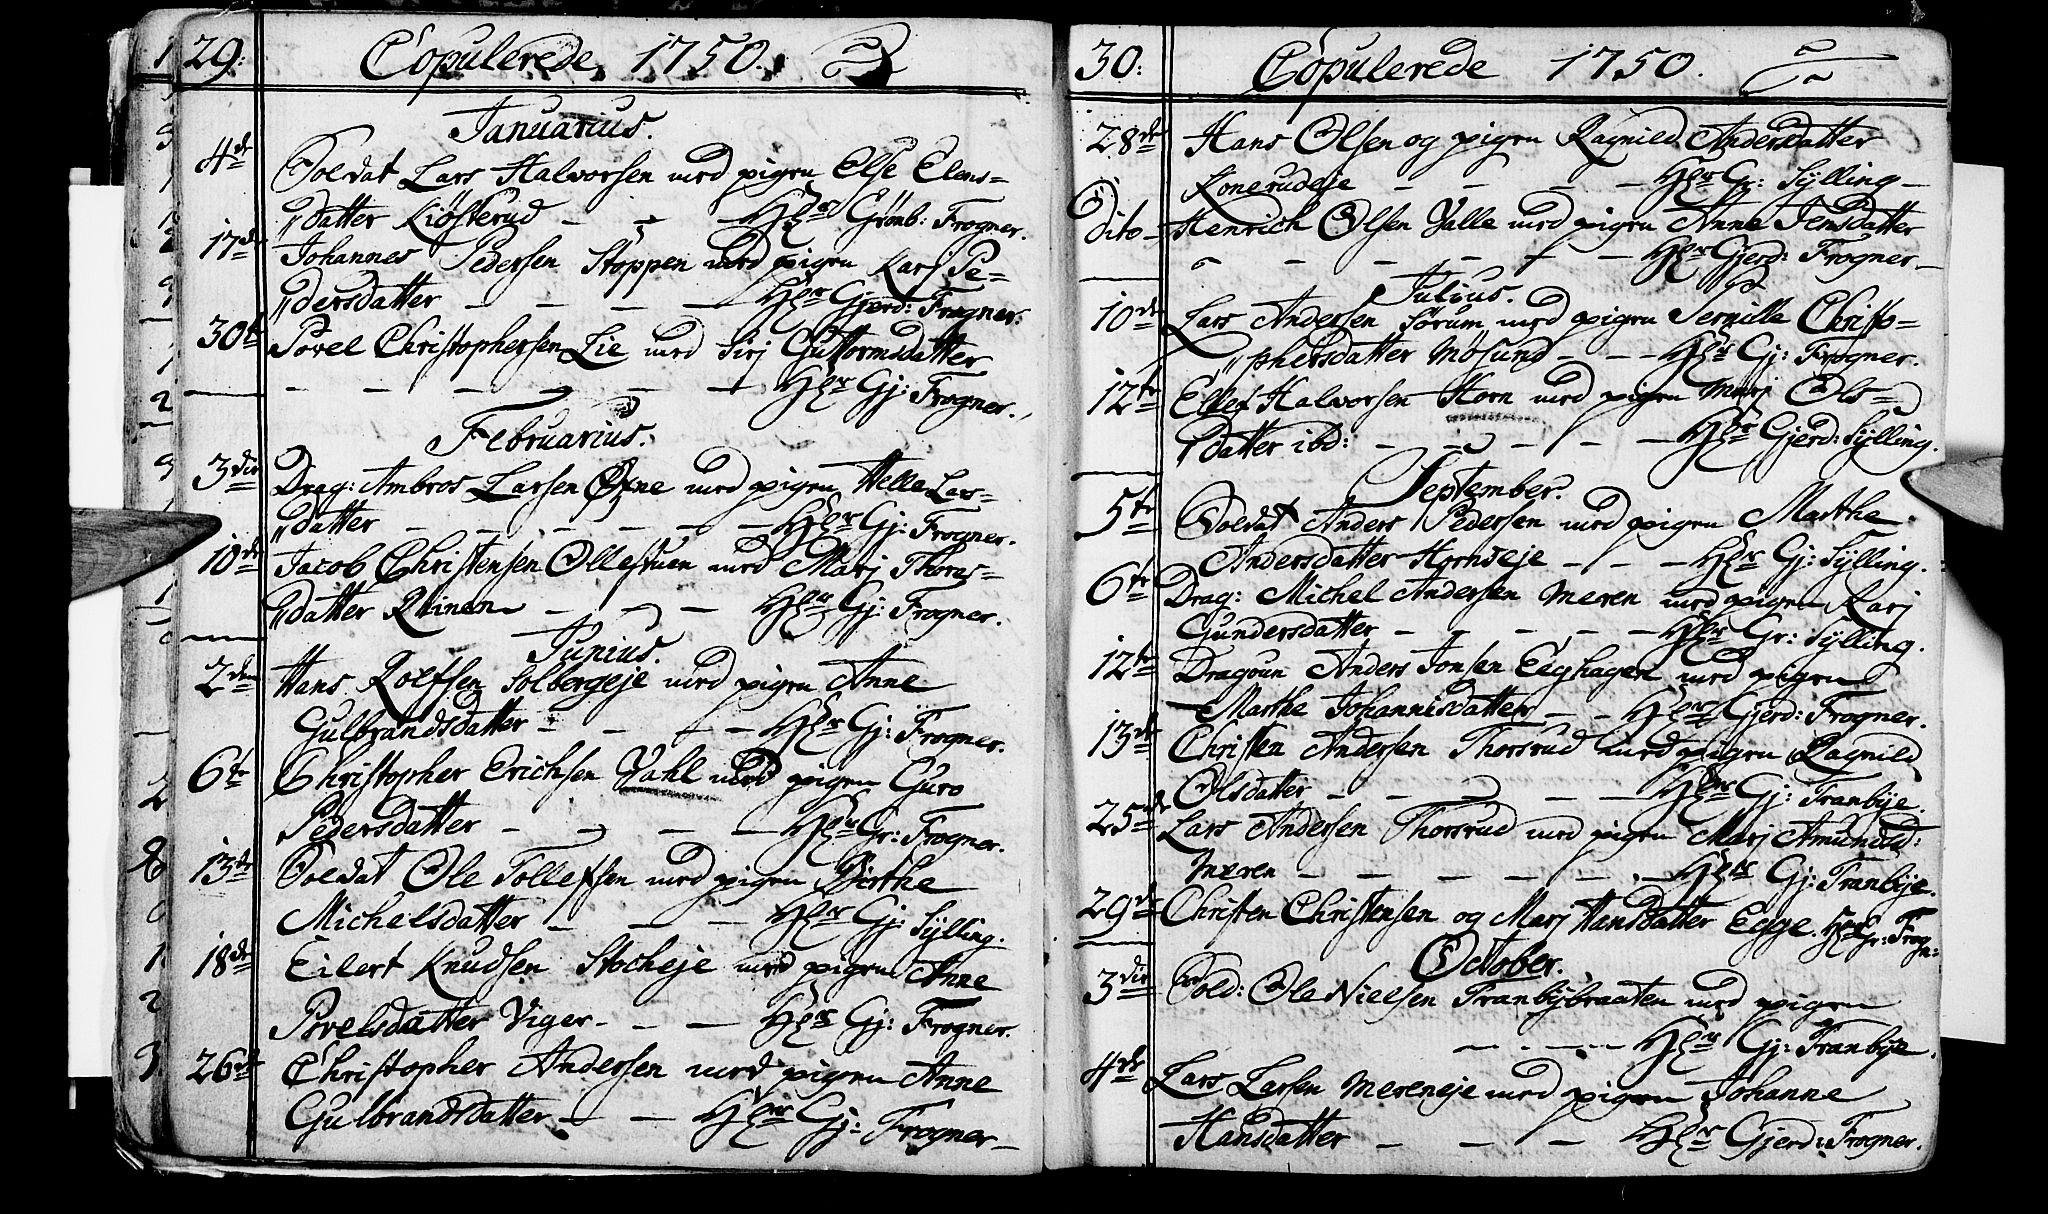 29: Copulerede 1750.
Januarius.
4de Soldat Lars Halvorsen med pigen Else Elens=
datter Kiösterud - - - Hr Grönb: Frogner.
17de Johannes Pedersen Stoppen med pigen Karj Pe=
dersdatter - - - - Hr Gjerd: Frogner.
30te Povel Christophersen Lie med Sirj Guttormsdatter
- - - - - - Hr Gj: Frogner.
Februarius.
3die Drag: Ambros Larsen med pigen Helle Lars=
datter - - - - - Hr Gj: Frogner.
10de Jacob Christensen Ollestuen med Marj Thores=
datter - - - Hr Gj: Frogner.
Junius.
2den Hans Rolfsen Solbergeje med pigen Anne
Gulbrandsdatter - - - - Hr Gj: Frogner.
6te Christopher Erichsen Vahl med pigen Guro
Pedersdatter - - - - Hr Gr: Frogner.
13de Soldat Ole Tollefsen med pigen Birthe
Michelsdatter - - - Hr Gj: Sylling.
18de Eilert Knudsen Stocheje med pigen Anne
Povelsdatter Viger - - - Hr Gj: Frogner.
26de Christopher Andersen med pigen Anne
Gulbrandsdatter - - - Hr Gj: Frogner -
30: Copulerede 1750.
28de Hans Olsen og pigen Ragnild Andersdatter
Konerudeje - - - - Hr Gr: Sylling -
Dito - Henrich Olsen Valle med pigen Anne Jensdatter
- - - - - - Hr Gjerd: Frogner -
Julius.
10de Lars Andersen Sørum med pigen Pernilla Christo=
phersdatter Møsund - - - Hr Gj: Frogner.
12te Ellef Halvorsen Horn med pigen Marj Ols=
datter ibd: - - - - - Hr Gjerd: Sylling.
September.
5te Soldat Anders Pedersen med pigen Marthe
Andersdatter Horneje - - - Hr Gj: Sylling.
6te Drag: Michel Andersen Meren med pigen Karj
Gundersdatter - - - - - Hr Gr: Sylling.
12te Dragoun Anders Jonsen Eeghagen med pigen
Marthe Johannisdatter - - Hr Gjerd: Frogner.
13de Christen Andersen Thorsrud med pigen Ragnild
Olsdatter - - - - - Hr Gj: Tranbye.
25de Lars Andersen Thorsrud med pigen Marj Amundsd:
Meren - - - - - - Hr Gj: Tranbye.
29de Christen Christensen og Marj Hansdatter Egge. Hr Gr: Frogn:
October.
3die Sold: Ole Nielsen Tranbybraaten med pigen
- - - - - Hr Gj: Tranbye.
4de Lars Larsen Mereneje med pigen Johanne
Hansdatter - - - - Hr Gjerd: Frogner.